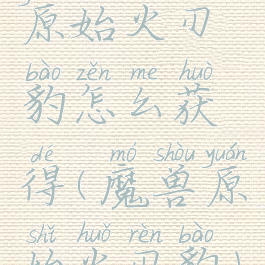 原始火刃
bào zěn me huò
豹怎么获
dé mó shòu yuán
得(魔兽原
shǐ huǒ rèn bào
始火刃豹)